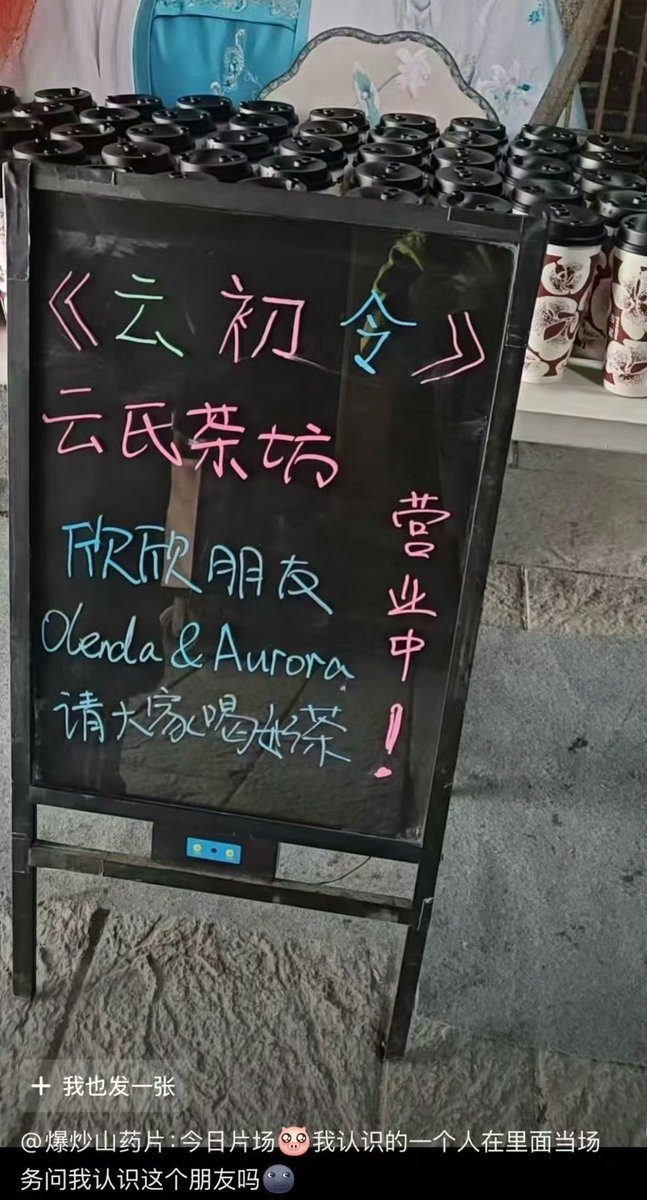 《云初令》
云氏茶坊
欣欣朋友
Olenda & Aurora
请大家喝好茶
营业中！
+ 我也发一张
@爆炒山药片:今日片场🐷我认识的一个人在里面当场
务问我认识这个朋友吗🌚